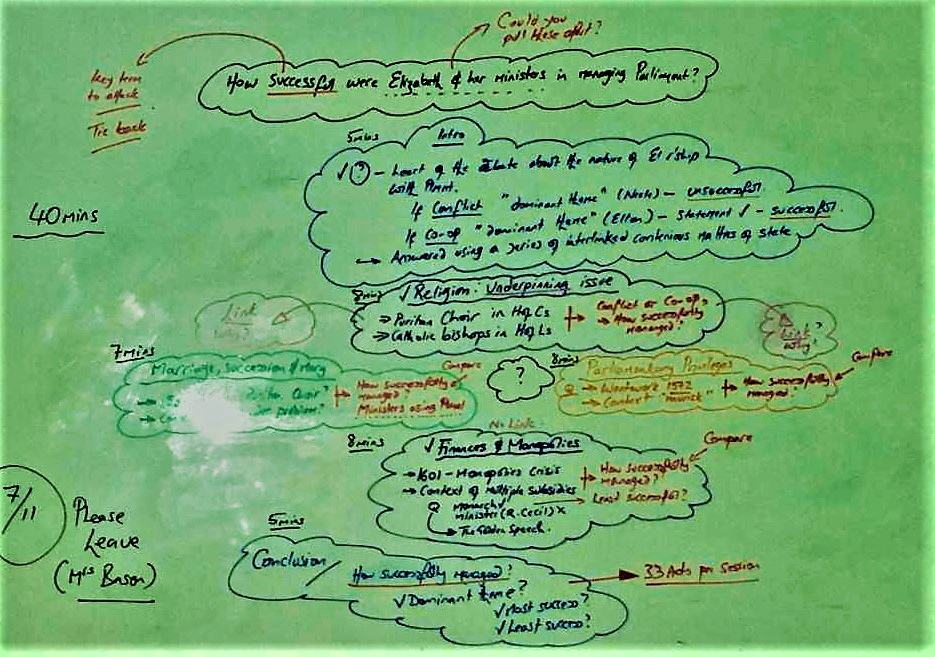 Could you
pull these apart?
Key term
to attack
Tie back
How successful were Elizabeth & her ministers in managing Parliament?
40 mins
5 mins
Intro
√ - Heart of the debate about the nature of El r'ship
with Parmt.
If Conflict "dominant theme" (Neale) - unsuccessful
If Co-op "dominant theme" (Elton) - statement √ - successful.
→ Answered using a series of interlinked contentious matters of state
8 mins
√ Religion: Underpinning issue
→ Puritan Choir in HofCs
→ Catholic bishops in HofLs
Conflict or Co-op?
→ How successfully
managed?
Link
why?
Link?
why?
7 mins
Marriage, succession & Mary
Choir"
problem"
How successfully
managed?
Ministers using Parmt
Compare
?
8 mins
Parliamentary Privileges
→ Wentworth 1572
→ Context "maverick"
→ How successfully
managed?
Compare
No Link
8 mins
√ Finances & Monopolies
→ 1601 - Monopolies Crisis
→ Context of multiple subsidies
Monarch √
Minister (R. Cecil) x
→ The Golden Speech.
How successfully
managed?
Least successful?
Compare
7/11
Please
Leave
(Mrs Bason)
5 mins
Conclusion
How successfully managed?
√ Dominant theme?
√ Most success?
√ Least success?
33 Acts per Session